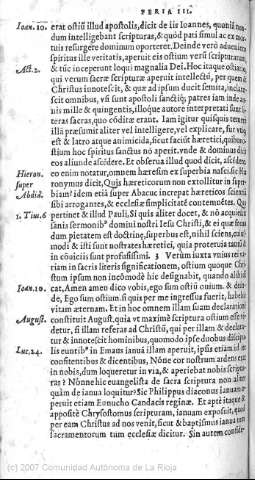 FERIA III.
Ioan. 10. erat ostiũ illud apostolis, dicit de iis Ioannes, quoniã nondum
intelligebant scripturas, & quòd pati simul ac ex mortuis
resurgere dominum oporteret. Deinde verò aduentus
spiritus ille veritatis, aperuit eis ostium verũ scripturarũ,
Act. 2. & tũc inceperunt loqui magnalia Dei. Hoc itaque ostium,
qui verum sacræ scripturæ aperuit intellectũ, per quem &
Christus innotescit, & quæ ad ipsum ducit semita,
omnibus, vsi sunt apostoli
ras sacras, quo cõditæ erant. Iam igitur quisquis
illã præsumit aliter vel intelligere, vel explicare, fur
est & latro atque ãnimicida, sicut faciũt hæretici,
stium hoc spiritus sanctus nõ aperit. vnde & dominus
eos aliunde ascẽdere. Et obserua illud quod dicit,
Hieron. eo enim notatur, omnem hæresim ex superbia nasci.
super ronymus dicit, Quis hæreticorum non extollitur in superbiam?
Abdiã. idem etiã super Abacuc increpat hæreticos
sibi arrogantes, & ecclesiæ simplicitatẽ contemnẽtes.
1. Tim. 6 pertinet & illud Pauli, Si quis aliter docet, & nõ acquiescit
sanis sermonib⁹ domini nostri Iesu Christi, & ei quæ secundum
pietatem est doctrinæ, superbus est, nihil sciens,
in cõuiciis sunt profusissimi. 3 Verùm iuxta
riam in sacris literis significationem, ostium quoque Christum
ipsum non incõmodè hic designabit, quando alibi
Ioan. 10. cat, Amen amen dico vobis, ego sum ostiũ ouium.
de, Ego sum ostium. si quis per me ingressus fuerit, habebit
vitam æternam. Et in hoc omnem illam suam declarationem
August. constituit August. quia vt maximè scriptura ostium esse
detur, si illam referas ad Christũ, qui per illam & declaratur
& innotescit hominibus, quomodo ipse duobus
Luc. 24. lis euntib⁹ in Emaus ianuã illam aperuit, etiam
confitentibus & dicentibus, Nõne cor nostrum ardens erat
in nobis, dum loqueretur in via, & aperiebat nobis scripturas?
Nónne hic euangelista de sacra scriptura non aliter
quàm de ianua loquitur? Sic Philippus diaconus ianuam
peruit etiam Eunucho Candacis reginæ. Et aptè itaque &
appositè Chrysostomus scripturam, ianuam exposuit,
per eam Christus ad nos venit, sicut & baptismus ianua
sacramentorum tum ecclesiæ dicitur. Sin autem
(c) 2007 Comunidad Autónoma de La Rioja